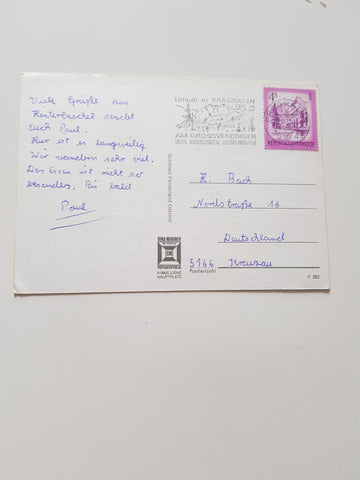 Viele Grüße aus
Hinterbichel sendet
Euch Paul.
Hier ist es langweilig
Wir wandern sehr viel.
Das Essen ist nicht so
besonders. Bis bald
Paul
Urlaub in PRÄGRATEN
AM GROSSVENEDIGER
4 S
REPUBLIK ÖSTERREICH
H. Bach
Nordstraße 16
Deutschland
5166 Kreuzau
Postleitzahl
Schönes Ferienland Osttirol
A 9900 LIENZ
HAUPTPLATZ
F 263